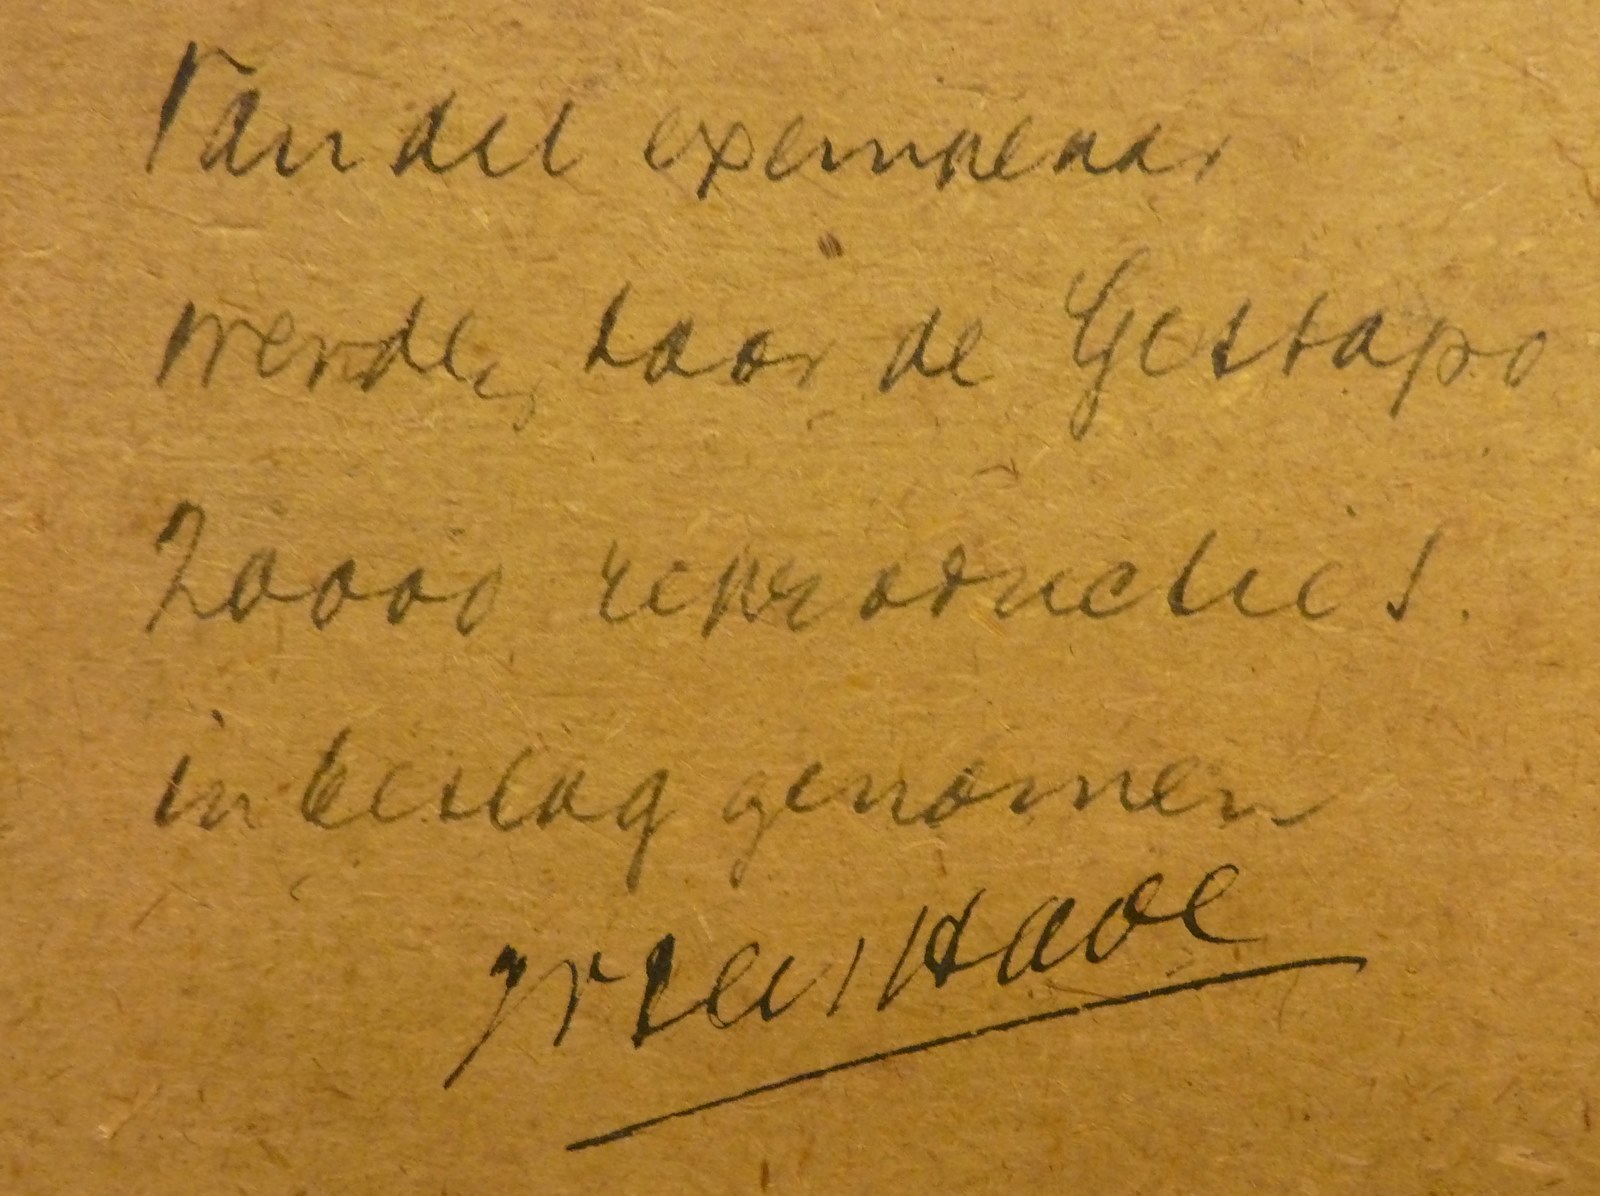 Van dit exemplaar
werden door de Gestapo
20000 reproducties.
in beslag genomen